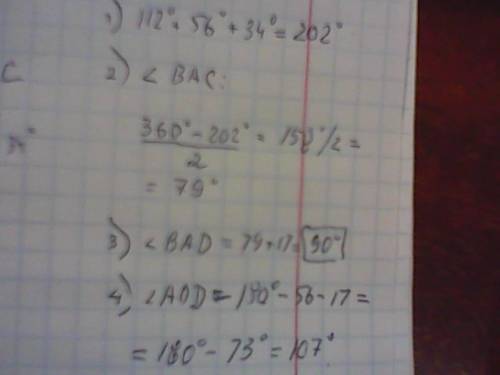 1) 112°+56°+34°=202°
C
2) < BAC:
360°-202° = 158°/2 =
2
= 79°
3) < BAD = 79+17= 90°
4) <AOD = 180°-56-17=
= 180°-73°=107°